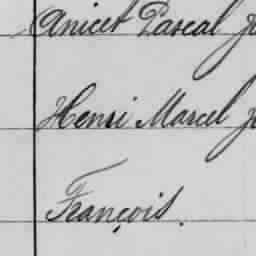 Anicet Pascal
Henri Marcel
François.